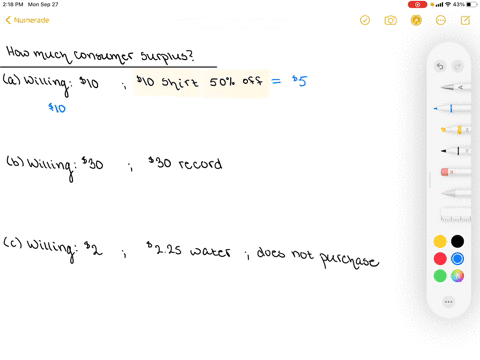 2:18 PM Mon Sep 27
43%
Numerade
How much consumer surplus?
(a) Willing: $10 ; $10 shirt 50% off = $5
$10
(b) Willing: $30 ; $30 record
(c) Willing: $2 ; $2.25 water ; does not purchase